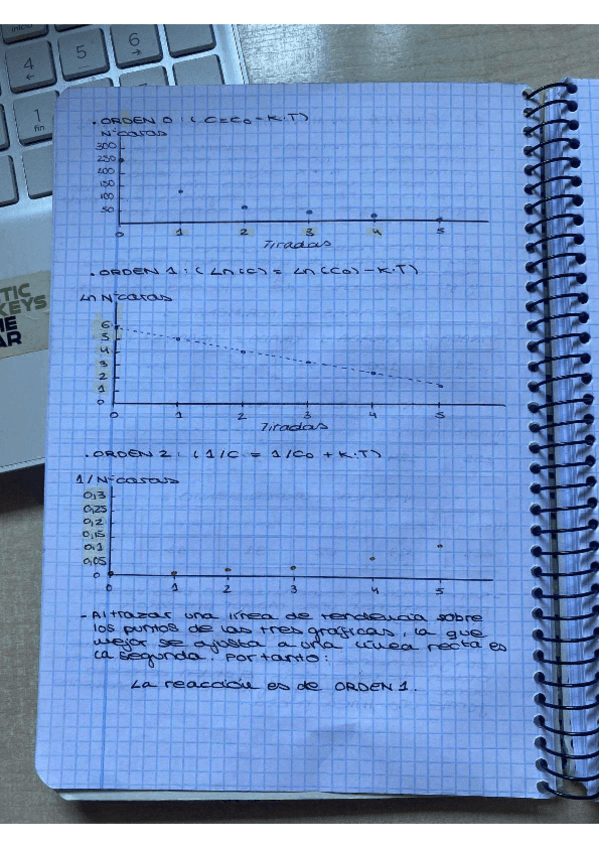 inicio
4
5
6
1
fin
TIC
KEYS
HE
AR
· ORDEN 0 : ( C=C0 - K·T)
Nºcaras
300
250
200
150
100
50
0 1 2 3 4 5
Tiradas
· ORDEN 1 : ( Ln(C) = Ln(C0) - K·T)
Ln Nºcaras
6
5
4
3
2
1
0
0 1 2 3 4 5
Tiradas
· ORDEN 2 : ( 1/C = 1/C0 + K·T)
1/Nºcaras
0,3
0,25
0,2
0,15
0,1
0,05
0
1 2 3 4 5
- Al trazar una línea de tendencia sobre
los puntos de las tres gráficas, la que
mejor se ajusta a una línea recta es
la segunda. Por tanto:
La reacción es de ORDEN 1.